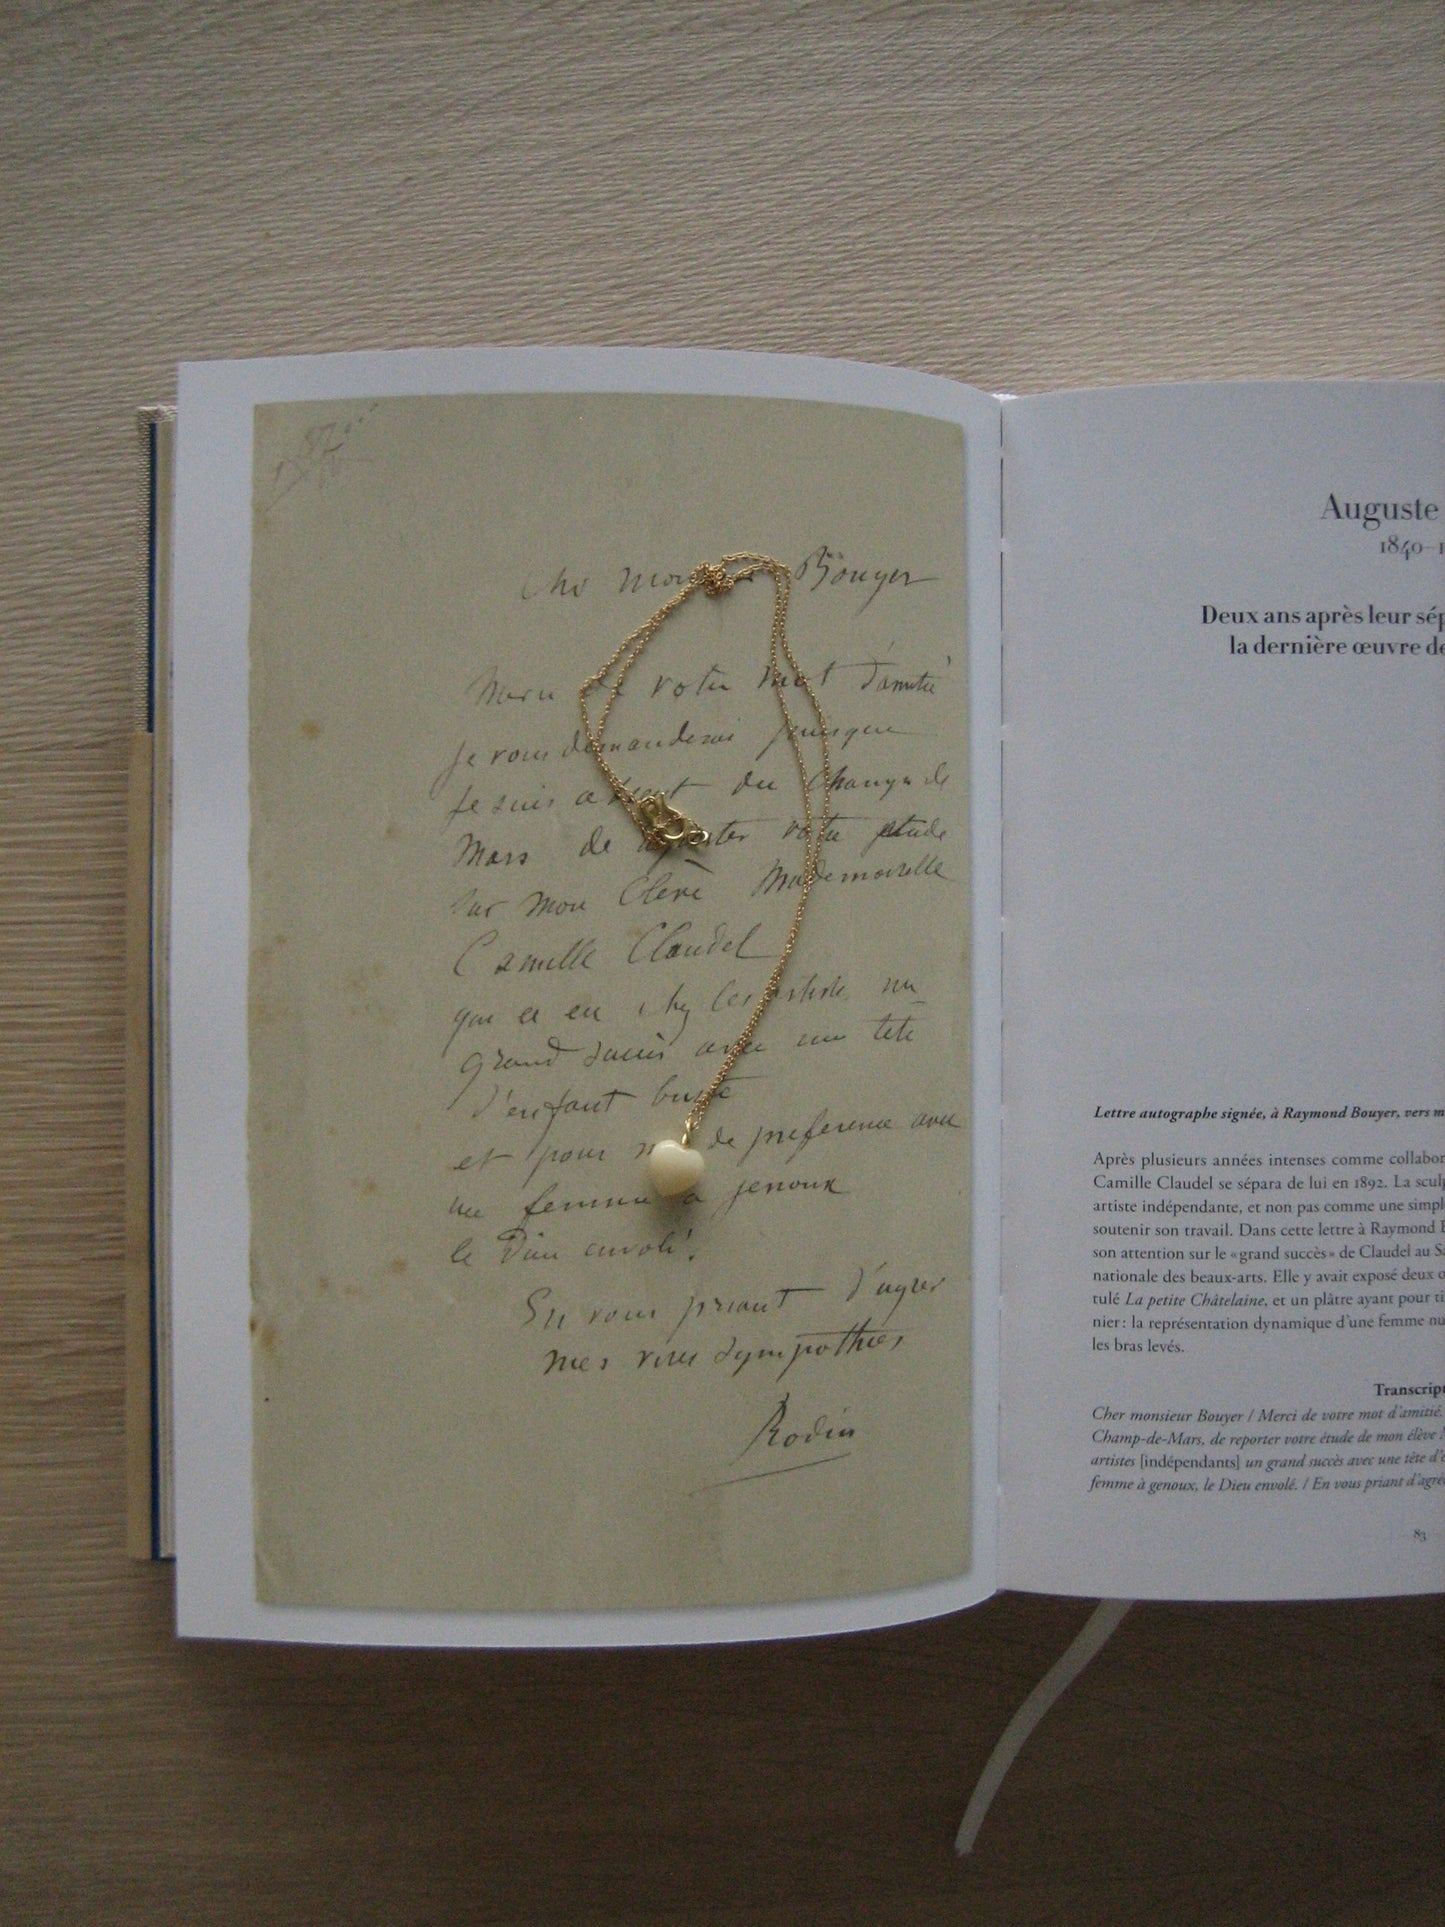 Cher Bouyer
Merci de votre mot d'amitié
Je vous demanderai puisque
je suis absent du Champ de
Mars de reporter votre étude
sur mon Elève Mademoiselle
Camille Claudel
qui a eu chez les artistes un
grand succès avec une tête
d'enfant buste
et pour moi de préférence avec
une femme à genoux
le Dieu envolé.
En vous priant d'agréer
mes vives sympathies
Rodin
Auguste
1840–1
Deux ans après leur sép
la dernière œuvre de
Lettre autographe signée, à Raymond Bouyer, vers m
Après plusieurs années intenses comme collabor
Camille Claudel se sépara de lui en 1892. La sculp
artiste indépendante, et non pas comme une simpl
soutenir son travail. Dans cette lettre à Raymond B
son attention sur le «grand succès» de Claudel au Sa
nationale des beaux-arts. Elle y avait exposé deux o
tulé La petite Châtelaine, et un plâtre ayant pour ti
nier : la représentation dynamique d'une femme nu
les bras levés.
Transcript
Cher monsieur Bouyer / Merci de votre mot d'amitié.
Champ-de-Mars, de reporter votre étude de mon élève M
artistes [indépendants] un grand succès avec une tête d'e
femme à genoux, le Dieu envolé. / En vous priant d'agré
83